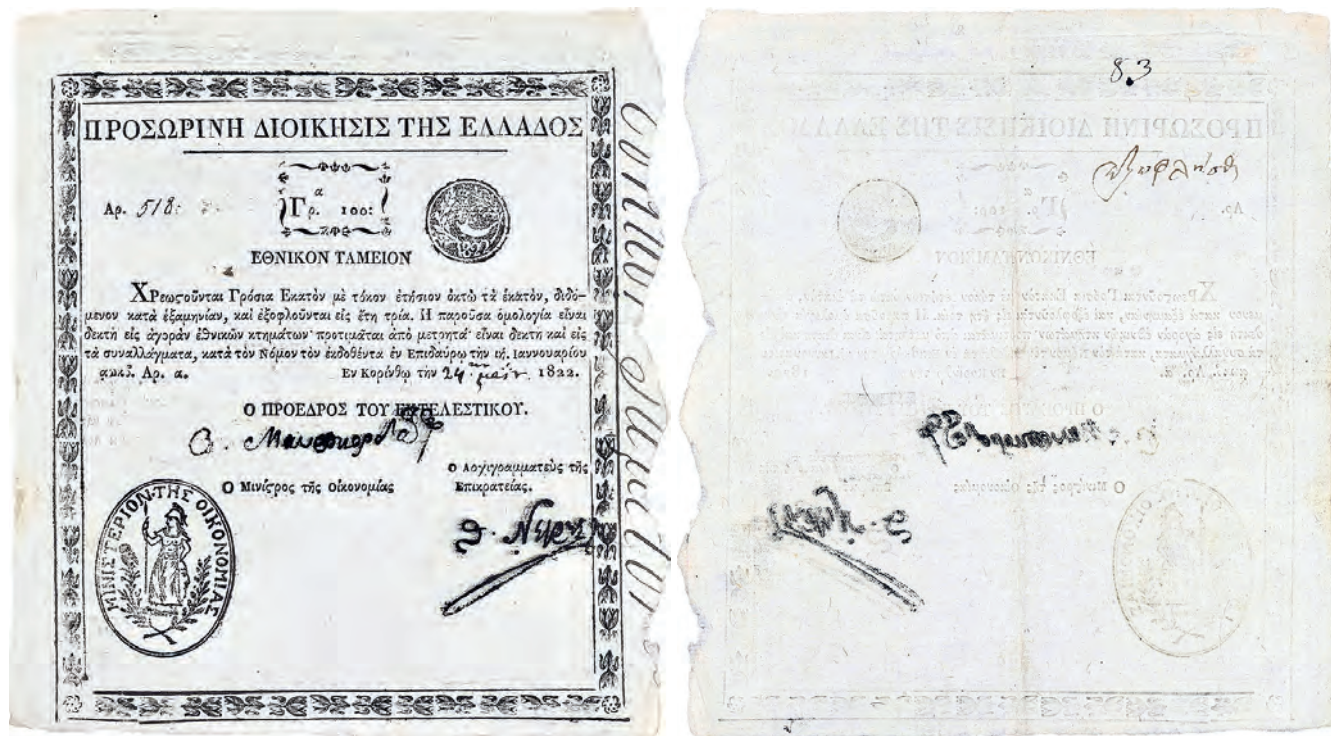 ΠΡΟΣΩΡΙΝΗ ΔΙΟΙΚΗΣΙΣ ΤΗΣ ΕΛΛΑΔΟΣ
Αρ. 518:
α
Γρ. 100:
ΕΘΝΙΚΟΝ ΤΑΜΕΙΟΝ
ΧΡεωϛοῦνται Γρόσια Εκατὸν μὲ τόκον ἐτήσιον ὀκτὼ τὰ ἑκατὸν, διδό-
μενον κατὰ ἑξαμηνίαν, καὶ ἐξοφλοῦνται εἰς ἔτη τρία. Η παροῦσα ὁμολογία εἶναι
δεκτὴ εἰς ἀγορὰν ἐθνικῶν κτημάτων· προτιμᾶται ἀπὸ μετρητά· εἶναι δεκτὴ καὶ εἰς
τὰ συναλλάγματα, κατὰ τὸν Νόμον τὸν ἐκδοθέντα ἐν Επιδαύρῳ τὴν ιή. Ιαννουαρίου
αωκβ. Αρ. α. Εν Κορίνθῳ τὴν 24 1822.
Ο ΠΡΟΕΔΡΟΣ ΤΟΥ ΕΚΤΕΛΕΣΤΙΚΟΥ.
Ο Μινίϛρος τῆς Οἰκονομίας
ο Αρχιγραμματεὺς τῆς
Επικρατείας.
Θ. Νέγρης
ΜΙΝΙΣΤΕΡΙΟΝ ΤΗΣ ΟΙΚΟΝΟΜΙΑΣ
83